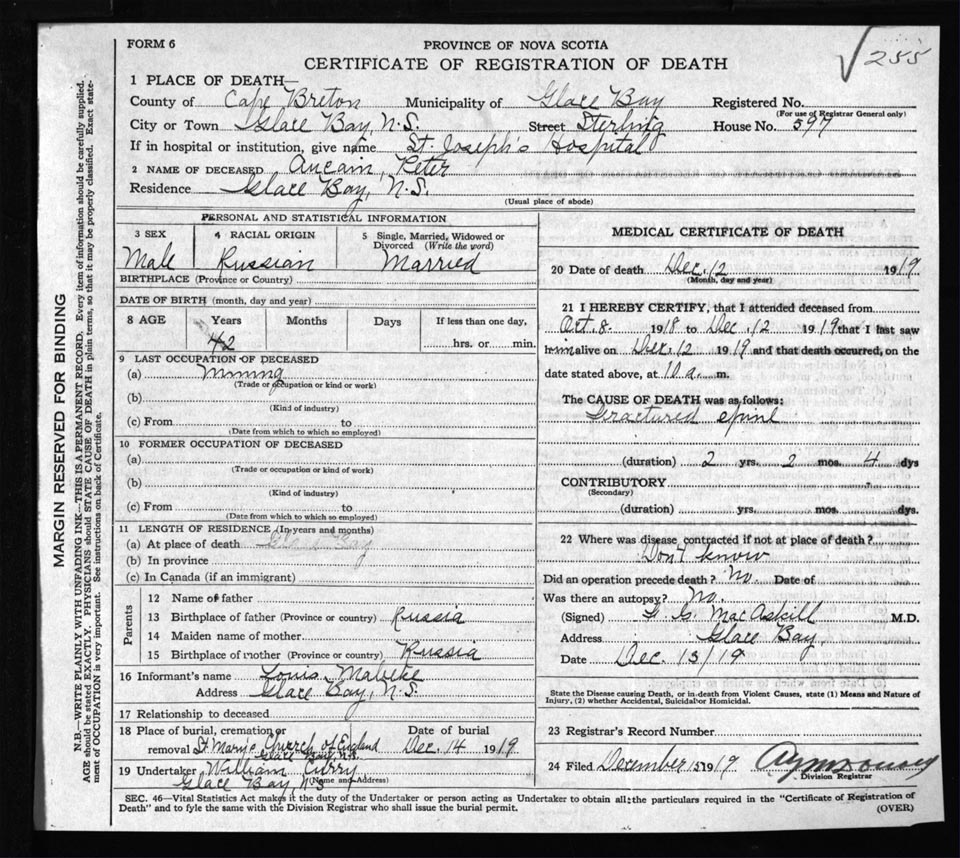 FORM 6
PROVINCE OF NOVA SCOTIA
CERTIFICATE OF REGISTRATION OF DEATH
√255
1 PLACE OF DEATH—
County of Cape Breton Municipality of Glace Bay Registered No.
(For use of Registrar General only)
City or Town Glace Bay, N.S. Street Sterling House No. 597
If in hospital or institution, give name St. Joseph's Hospital
2 NAME OF DECEASED Peter
Residence Glace Bay, N.S.
(Usual place of abode)
PERSONAL AND STATISTICAL INFORMATION
3 SEX 4 RACIAL ORIGIN 5 Single, Married, Widowed or Divorced (Write the word)
Male Russian Married
BIRTHPLACE (Province or Country)
DATE OF BIRTH (month, day and year)
8 AGE Years Months Days If less than one day,
42 hrs. or min.
9 LAST OCCUPATION OF DECEASED
(a) Mining
(Trade or occupation or kind or work)
(b)
(Kind of industry)
(c) From to
(Date from which to which so employed)
10 FORMER OCCUPATION OF DECEASED
(a)
(Trade or occupation or kind of work)
(b)
(Kind of industry)
(c) From to
(Date from which to which so employed)
11 LENGTH OF RESIDENCE (In years and months)
(a) At place of death Glace Bay
(b) In province
(c) In Canada (if an immigrant)
Parents
12 Name of father
13 Birthplace of father (Province or country) Russia
14 Maiden name of mother
15 Birthplace of mother (Province or country) Russia
16 Informant's name Louis
Address Glace Bay, N.S.
17 Relationship to deceased
18 Place of burial, cremation or removal Date of burial
St Mary's Church of England Dec. 14 1919
Glace Bay, N.S.
19 Undertaker William Curry
(Name and Address)
Glace Bay, N.S
MEDICAL CERTIFICATE OF DEATH
20 Date of death Dec. 12 1919.
(Month, day and year)
21 I HEREBY CERTIFY, that I attended deceased from
Oct. 8. 1918 to Dec. 12 1919 that I last saw
him alive on Dec. 12 1919 and that death occurred, on the
date stated above, at 10 a. m.
The CAUSE OF DEATH was as follows:
Fractured spine
(duration) 2 yrs. 2 mos. 4 dys
CONTRIBUTORY
(Secondary)
(duration) yrs. mos. dys.
22 Where was disease contracted if not at place of death?
Don't know
Did an operation precede death? No. Date of
Was there an autopsy? No.
(Signed) MacAskill M.D.
Address Glace Bay
Date Dec. 13/19
State the Disease causing Death, or in death from Violent Causes, state (1) Means and Nature of
Injury, (2) whether Accidental, Suicidal or Homicidal.
23 Registrar's Record Number
24 Filed December 15 1919
Division Registrar
SEC. 46—Vital Statistics Act makes it the duty of the Undertaker or person acting as Undertaker to obtain all the particulars required in the "Certificate of Registration of
Death" and to fyle the same with the Division Registrar who shall issue the burial permit.
(OVER)
MARGIN RESERVED FOR BINDING
N.B.—WRITE PLAINLY WITH UNFADING INK—THIS IS A PERMANENT RECORD. Every item of information should be carefully supplied.
AGE should be stated EXACTLY. PHYSICIANS should STATE CAUSE OF DEATH in plain terms, so that it may be properly classified. Exact state-
ment of OCCUPATION is very important. See instructions on back of Certificate.